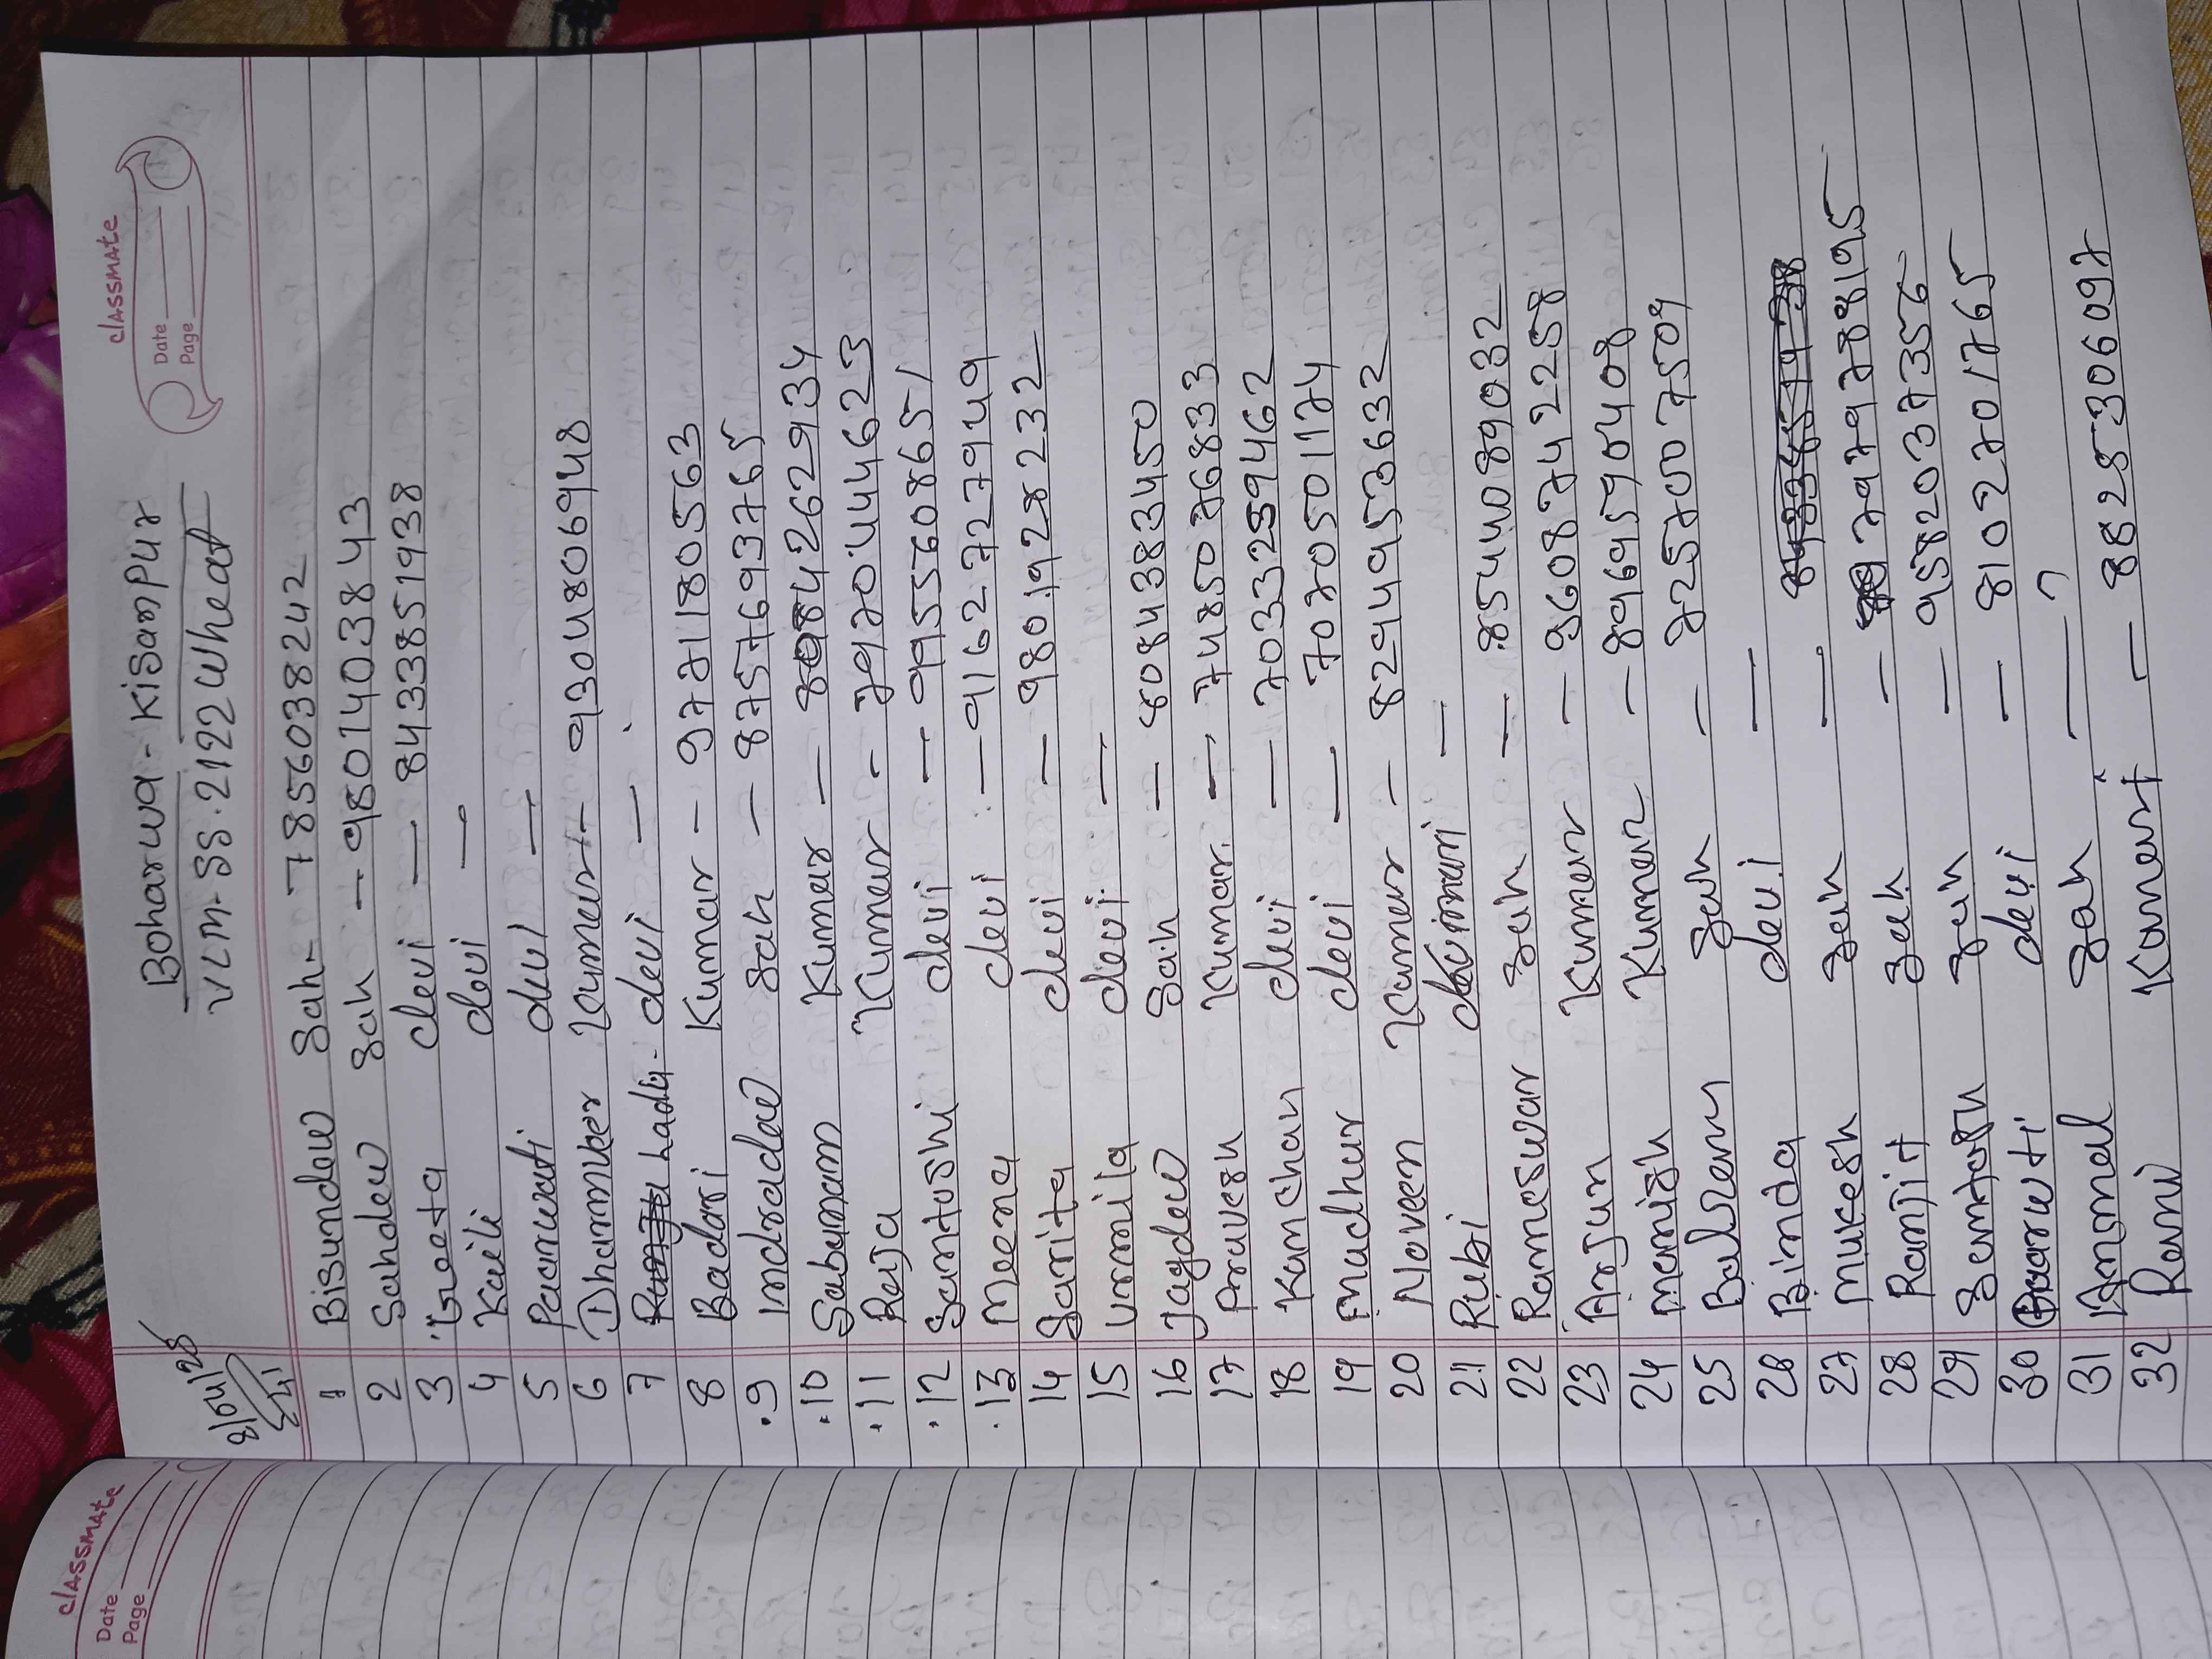 classmate
Date
Page
Boharwa - Kisanpur
VLM-SS.2122 Wheat
8/04/25
1 Bisundew Sah - 7856038242
2 Sahdew Sah - 9801403843
3 Geeta devi - 8433851938
4 Kaili devi -
5 Paarwati devi -
6 Dharmuber Kumar - 9304806948
7 Ladu devi -
8 Badari Kumar - 9771180563
9 Indradew Sah - 8757693765
10 Kumar - 8084262934
11 Raja Kumar - 7970444623
12 Santoshi devi - 9955608651
13 Meena devi - 9162727949
14 Sarita devi - 9801928232
15 Urmila devi -
16 Jagdew Sah - 8084383450
17 Pravesh Kumar - 7485076833
18 Kanchan devi - 7033259462
19 Madhur devi - 7070501174
20 Naveen Kumar - 8294953632
21 Rubi Kumari -
22 Rameswar Sah - 8544089032
23 Arjun Kumar - 9608742258
24 Manish Kumar - 8969590408
25 Balram Sah - 7257007509
26 Binda devi -
27 Mukesh Sah -
28 Ranjit Sah - 7979788195
29 Santosh Sah - 9582037356
30 Paarwti devi - 8102701765
31 Anmol Sah - ?
32 Kumari - 8825306097
classmate
Date
Page